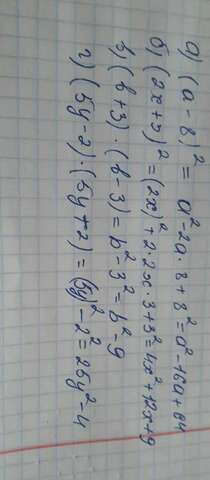 а) (a - 8)² = a² - 2a · 8 + 8² = a² - 16a + 64
б) (2x + 3)² = (2x)² + 2 · 2x · 3 + 3² = 4x² + 12x + 9
в) (b + 3) · (b - 3) = b² - 3² = b² - 9
г) (5y - 2) · (5y + 2) = (5y)² - 2² = 25y² - 4